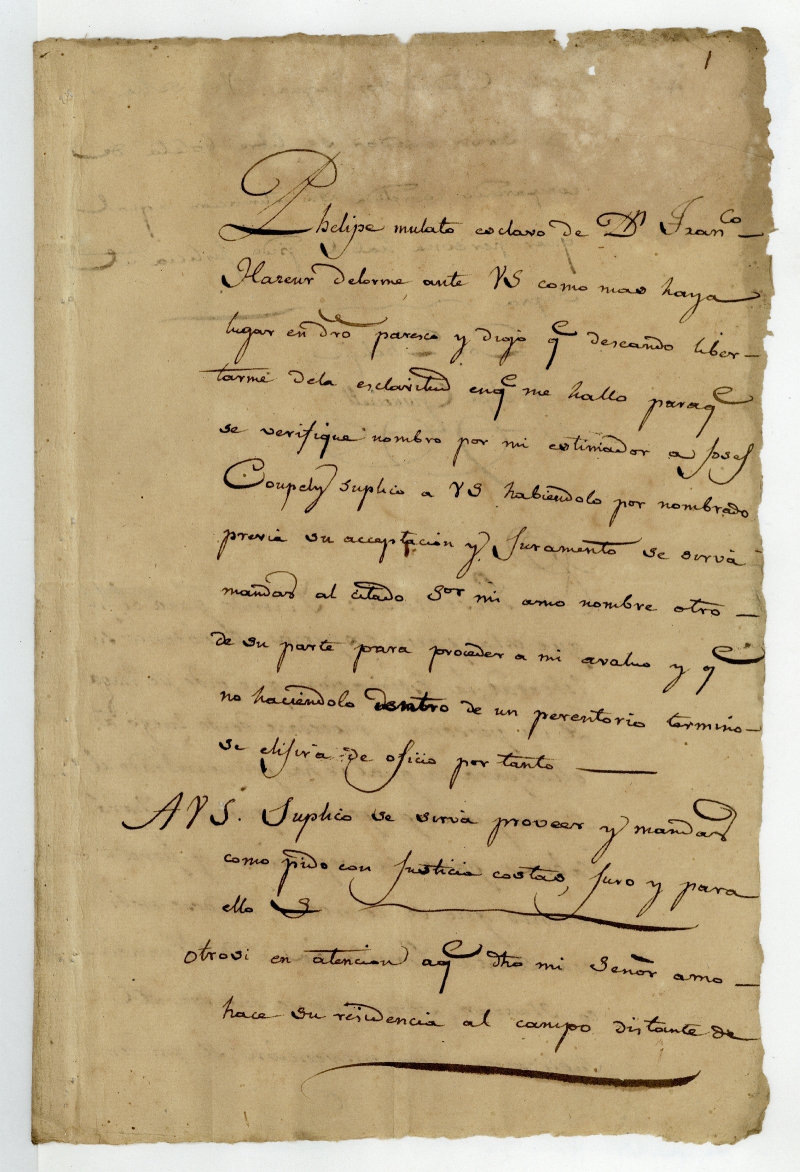 1
Phelipe mulato esclavo de Dn Franco
Hazeur delorme, ante VS como mas haya
lugar en dro paresco y digo q deseando liber-
tarme dela esclavitud enq me hallo paraq
se verifique nombro por mi estimador a Josef
Coupely suplico a VS habiéndolo por nombrado
previa su acceptacion y Juramento se sirva
mandar al citado Sor mi amo nombre otro
de su parte para proceder a mi avaluo y q
no haciéndolo dentro de un perentorio termino
se elijira de oficio por tanto
A VS. Suplico se sirva proveer y mandar
como pido con Justicia costas, Juro y para
ello S
otrosi en atencion aq dho mi señor amo
hace su residencia al campo distante de